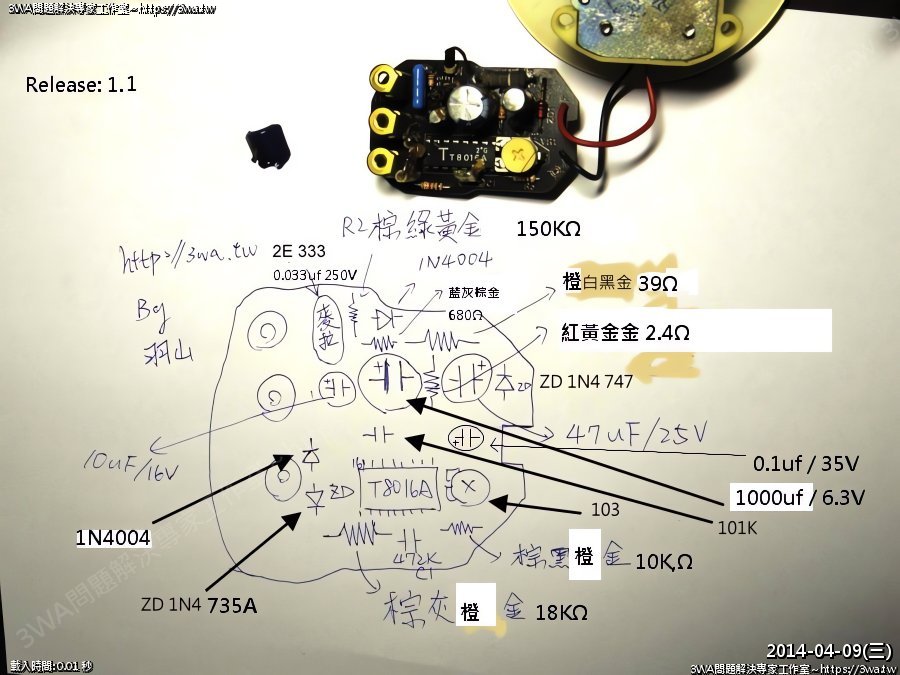 3WA問題解決專家工作室~https://3wa.tw
Release: 1.1
TT8016A
2*G
R2棕綠黃金 150KΩ
http://3wa.tw
2E 333
0.033uf 250V
1N4004
By
羽山
麥拉
藍灰棕金
680Ω
橙白黑金 39Ω
紅黃金金 2.4Ω
ZD
ZD 1N4 747
10uF/16V
47uF/25V
0.1uf / 35V
1000uf / 6.3V
101K
16
ZD
T8016A
103
1N4004
472K
C1
棕黑橙金 10K,Ω
ZD 1N4 735A
棕灰橙金 18KΩ
3WA問題解決專家工作室
2014-04-09(三)
載入時間:0.01 秒
3WA問題解決專家工作室~https://3wa.tw